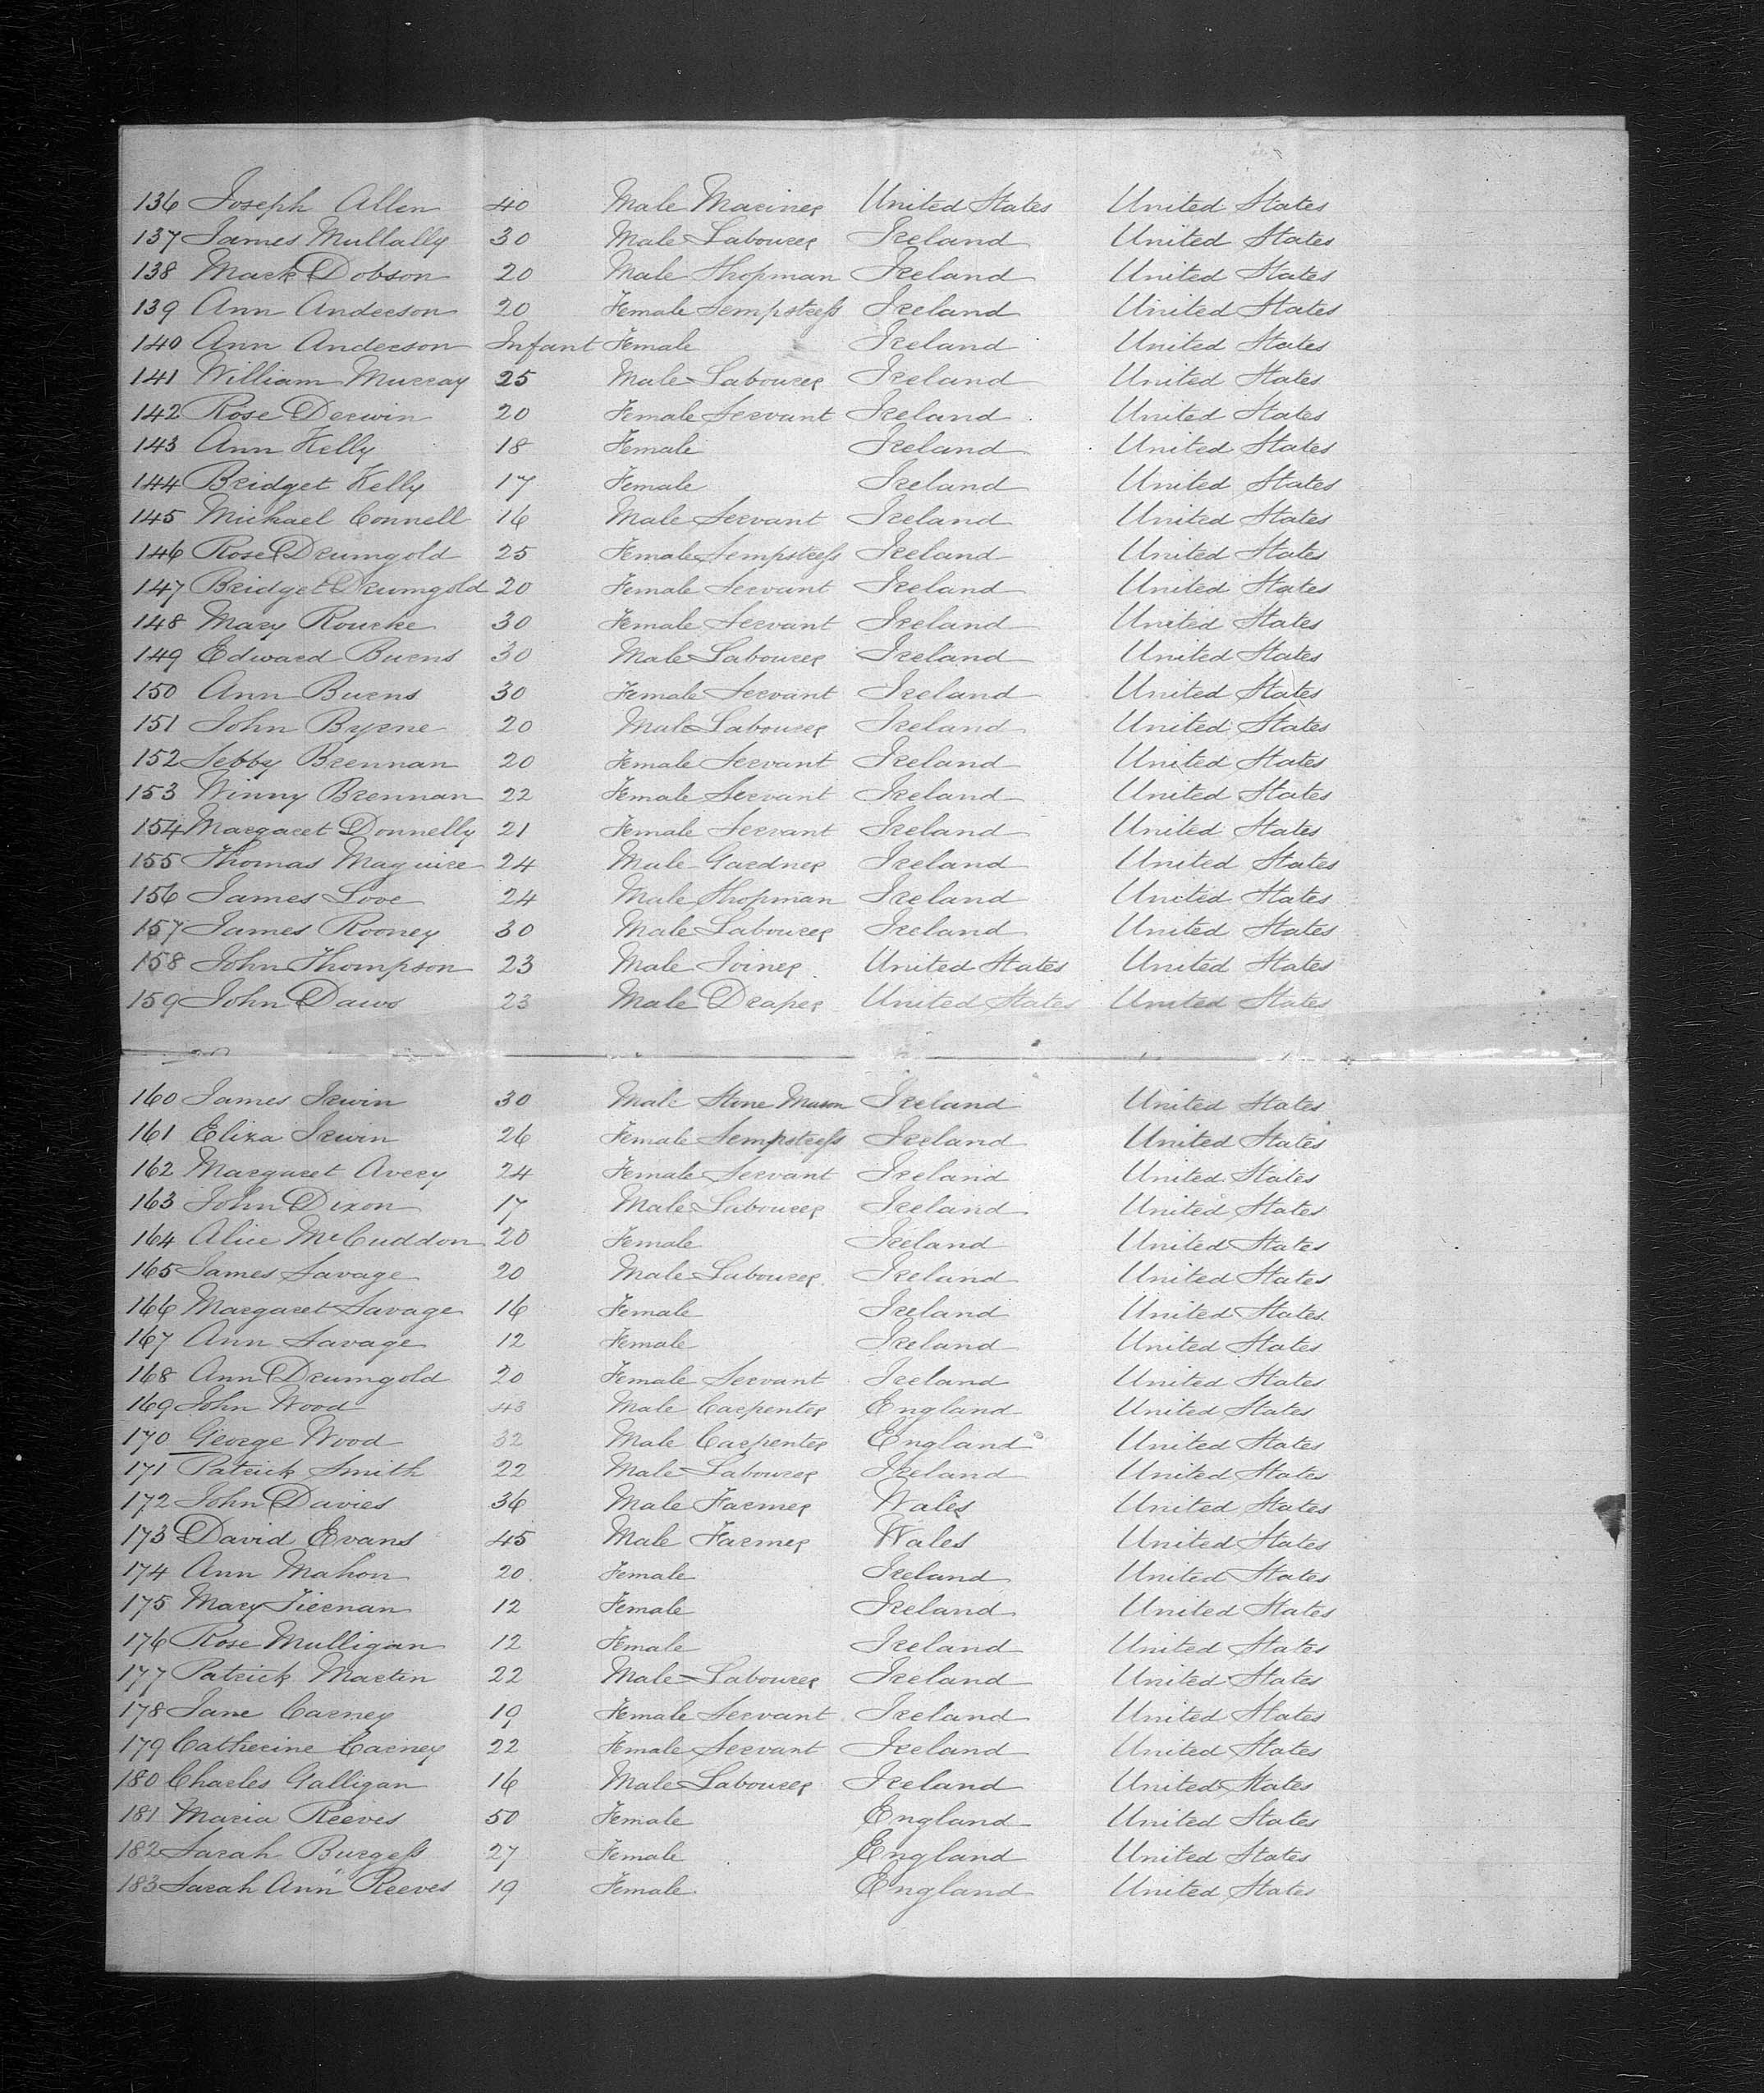 136 Joseph Allen 40 Male Mariner United States United States
137 James Mullally 30 Male Labourer Ireland United States
138 Mark Dobson 20 Male Shopman Ireland United States
139 Ann Anderson 20 Female Sempstress Ireland United States
140 Ann Anderson Infant Female Ireland United States
141 William Murray 25 Male Labourer Ireland United States
142 Rose Derwin 20 Female Servant Ireland United States
143 Ann Kelly 18 Female Ireland United States
144 Bridget Kelly 17 Female Ireland United States
145 Michael Connell 16 Male Servant Ireland United States
146 Rose Drumgold 25 Female Sempstress Ireland United States
147 Bridget Drumgold 20 Female Servant Ireland United States
148 Mary Rourke 30 Female Servant Ireland United States
149 Edward Burns 30 Male Labourer Ireland United States
150 Ann Burns 30 Female Servant Ireland United States
151 John Byrne 20 Male Labourer Ireland United States
152 Sebby Brennan 20 Female Servant Ireland United States
153 Winny Brennan 22 Female Servant Ireland United States
154 Margaret Donnelly 21 Female Servant Ireland United States
155 Thomas Maguire 24 Male Gardner Ireland United States
156 James Love 24 Male Shopman Ireland United States
157 James Rooney 30 Male Labourer Ireland United States
158 John Thompson 23 Male Joiner United States United States
159 John Daws 23 Male Draper United States United States
160 James Irwin 30 Male Stone Mason Ireland United States
161 Eliza Irwin 26 Female Sempstress Ireland United States
162 Margaret Avery 24 Female Servant Ireland United States
163 John Dixon 17 Male Labourer Ireland United States
164 Alice McCuddon 20 Female Ireland United States
165 James Savage 20 Male Labourer Ireland United States
166 Margaret Savage 16 Female Ireland United States
167 Ann Savage 12 Female Ireland United States
168 Ann Drumgold 20 Female Servant Ireland United States
169 John Wood 43 Male Carpenter England United States
170 George Wood 32 Male Carpenter England United States
171 Patrick Smith 22 Male Labourer Ireland United States
172 John Davies 36 Male Farmer Wales United States
173 David Evans 45 Male Farmer Wales United States
174 Ann Mahon 20 Female Ireland United States
175 Mary Tiernan 12 Female Ireland United States
176 Rose Mulligan 12 Female Ireland United States
177 Patrick Martin 22 Male Labourer Ireland United States
178 Jane Carney 19 Female Servant Ireland United States
179 Catherine Carney 22 Female Servant Ireland United States
180 Charles Galligan 16 Male Labourer Ireland United States
181 Maria Reeves 50 Female England United States
182 Sarah Burgess 27 Female England United States
183 Sarah Ann Reeves 19 Female England United States